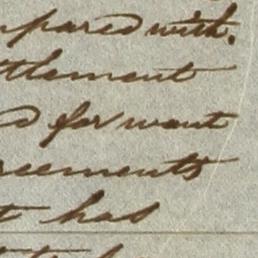 mpared with.
ttlement
d for want
reements
t has